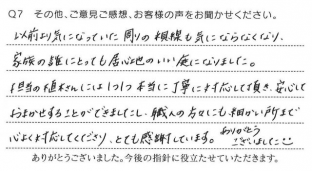 Q7 その他、ご意見ご感想、お客様の声をお聞かせください。
以前より気になっていた周りの目線も気にならなくなり、
家族の誰にとても居心地のいい庭になりました。
担当の植木さんには1つ1つ本当に丁寧に対応して頂き、安心して
おまかせすることができましたし、職人の方々にも細かい所まで
心よく対応してくださり、とても感謝しています。ありがとう
ございました
ありがとうございました。今後の指針に役立たせていただきます。